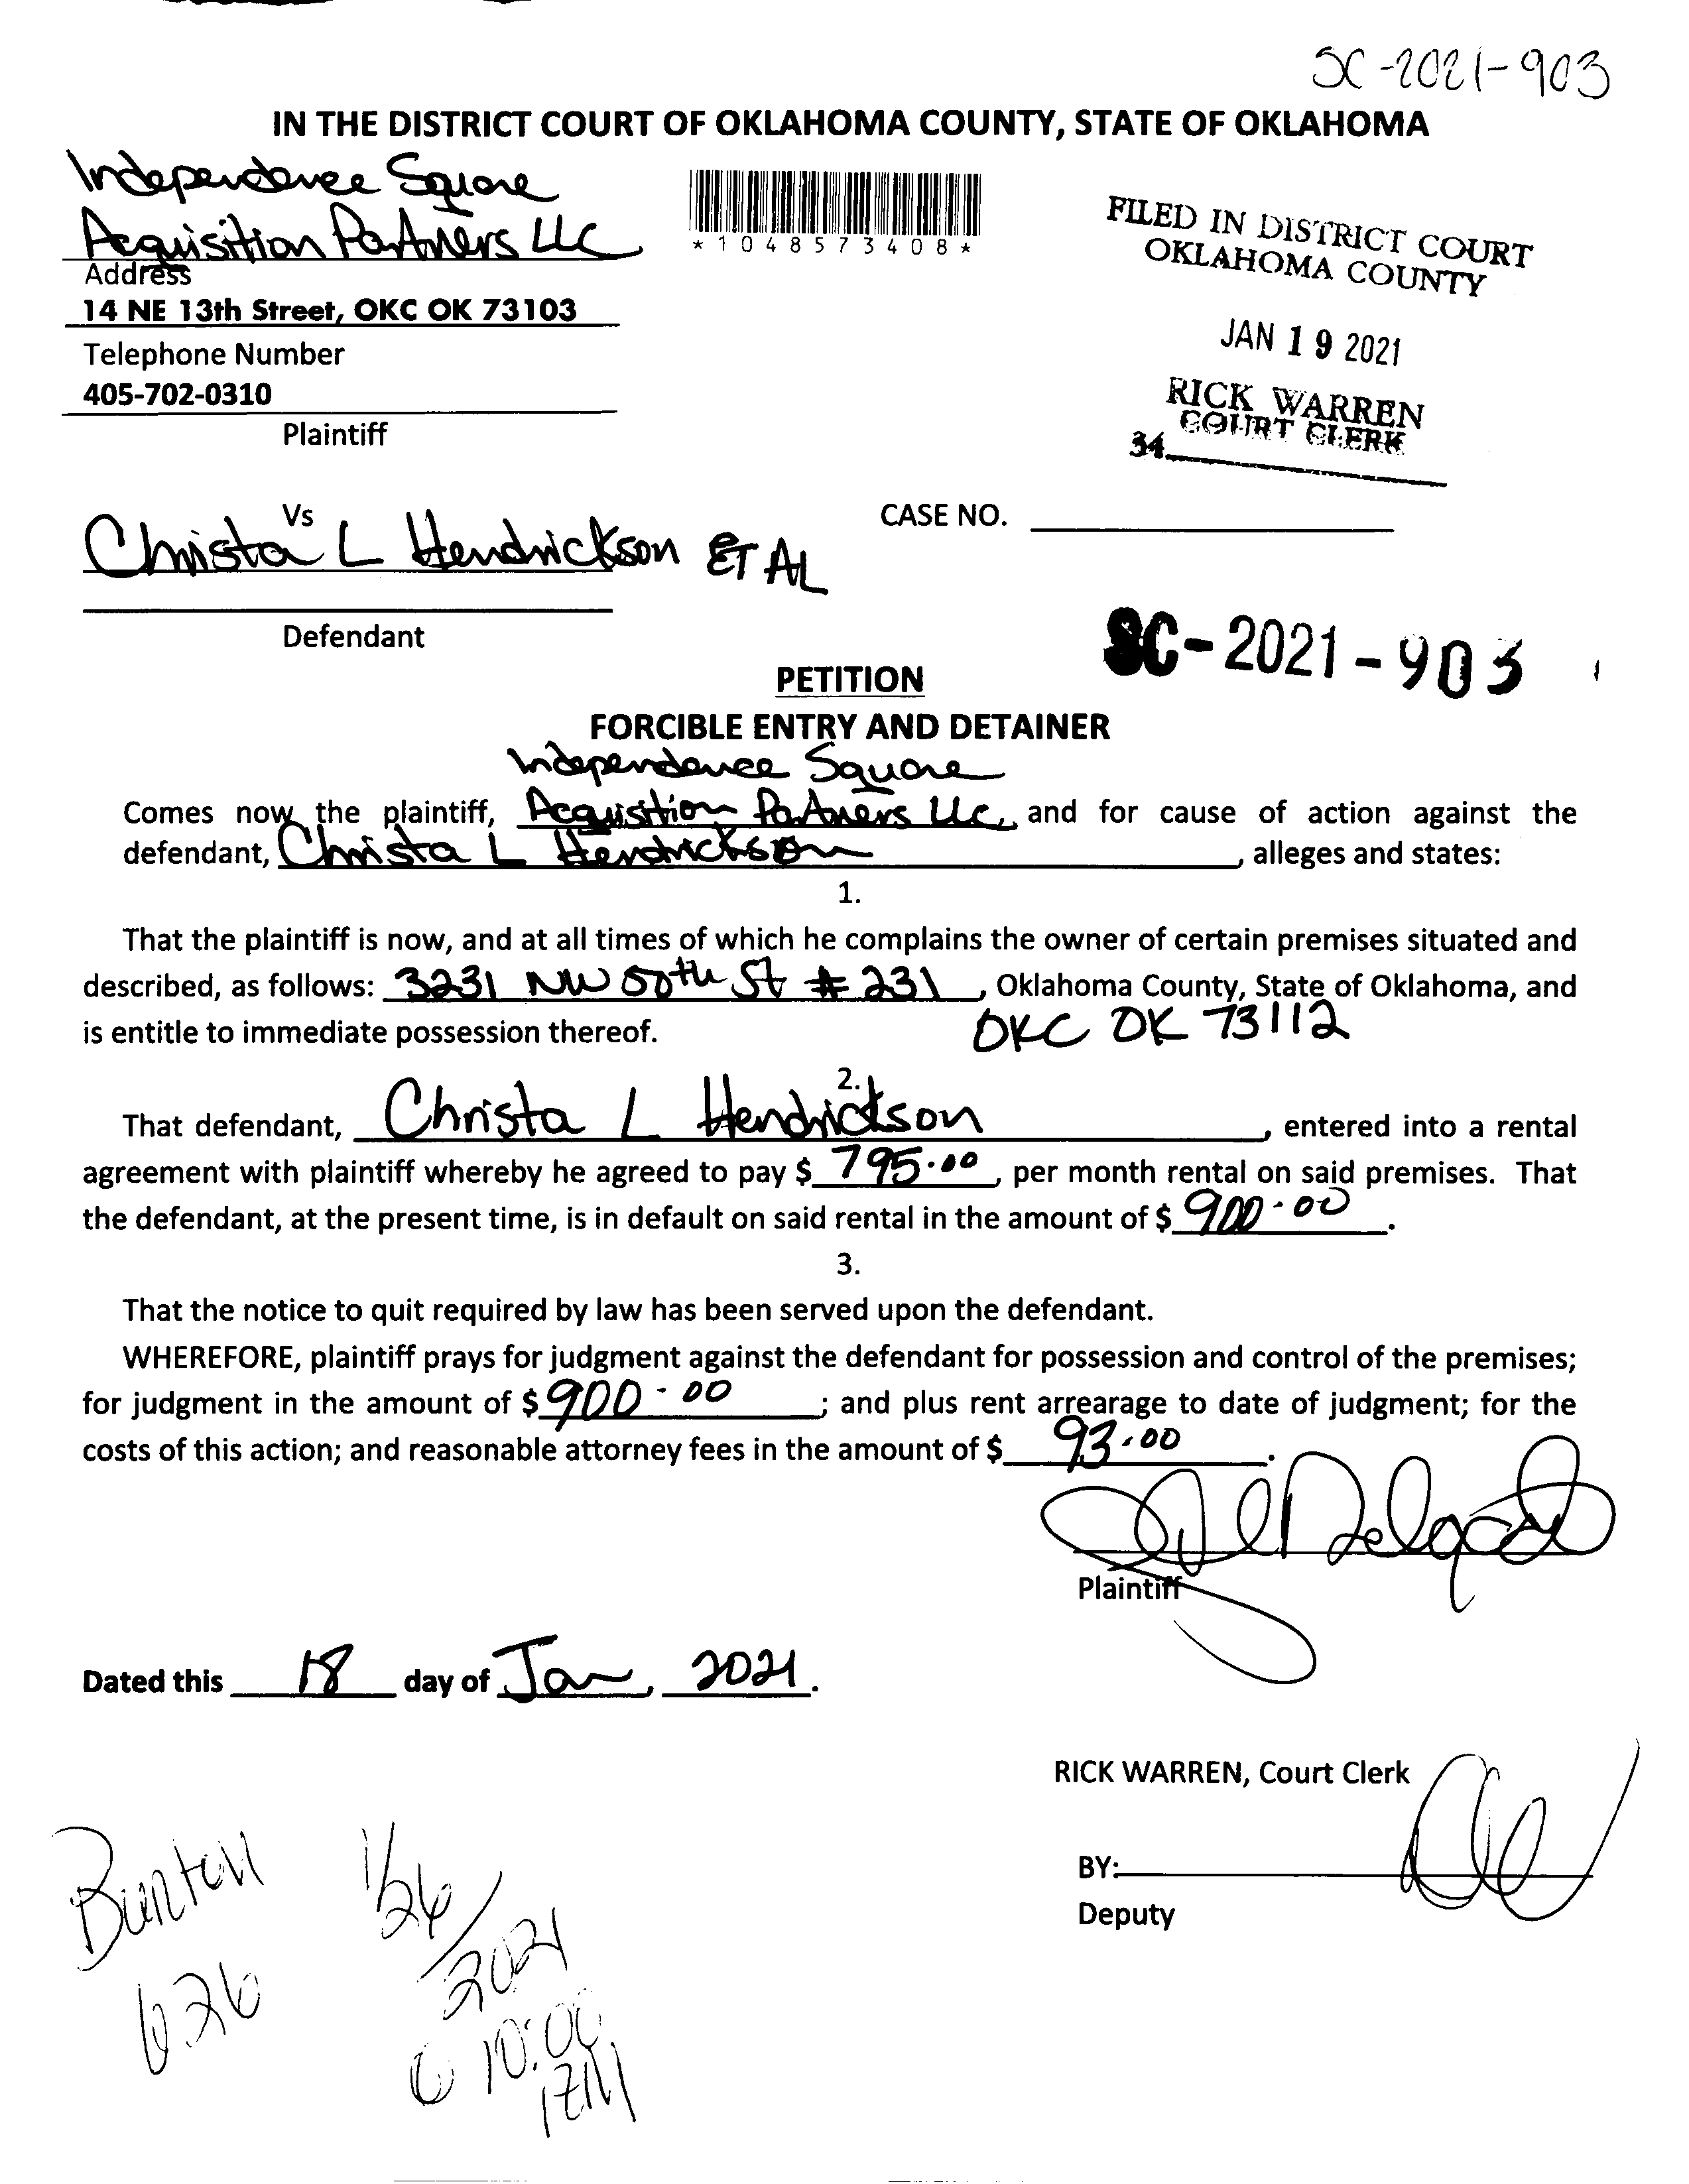 SC-2021-903
IN THE DISTRICT COURT OF OKLAHOMA COUNTY, STATE OF OKLAHOMA
Independence Square
Acquisition Partners LLC
Address
14 NE 13th Street, OKC OK 73103
Telephone Number
405-702-0310
Plaintiff
*1048573408*
FILED IN DISTRICT COURT
OKLAHOMA COUNTY
JAN 19 2021
RICK WARREN
COURT CLERK
34
Vs
CASE NO.
Christa L Hendrickson ET AL
Defendant
SC-2021-903
PETITION
FORCIBLE ENTRY AND DETAINER
Independence Square
Comes now the plaintiff, Acquisition Partners LLC, and for cause of action against the
defendant, Christa L Hendrickson, alleges and states:
1.
That the plaintiff is now, and at all times of which he complains the owner of certain premises situated and
described, as follows: 3231 NW 50th St # 231, Oklahoma County, State of Oklahoma, and
is entitle to immediate possession thereof. OKC OK 73112
2.
That defendant, Christa L Hendrickson, entered into a rental
agreement with plaintiff whereby he agreed to pay $ 795.00, per month rental on said premises. That
the defendant, at the present time, is in default on said rental in the amount of $ 900.00.
3.
That the notice to quit required by law has been served upon the defendant.
WHEREFORE, plaintiff prays for judgment against the defendant for possession and control of the premises;
for judgment in the amount of $ 900.00; and plus rent arrearage to date of judgment; for the
costs of this action; and reasonable attorney fees in the amount of $ 93.00.
Delgado
Plaintiff
Dated this 18 day of Jan, 2021.
RICK WARREN, Court Clerk
BY:
Deputy
626
1/26/
2021
10:00